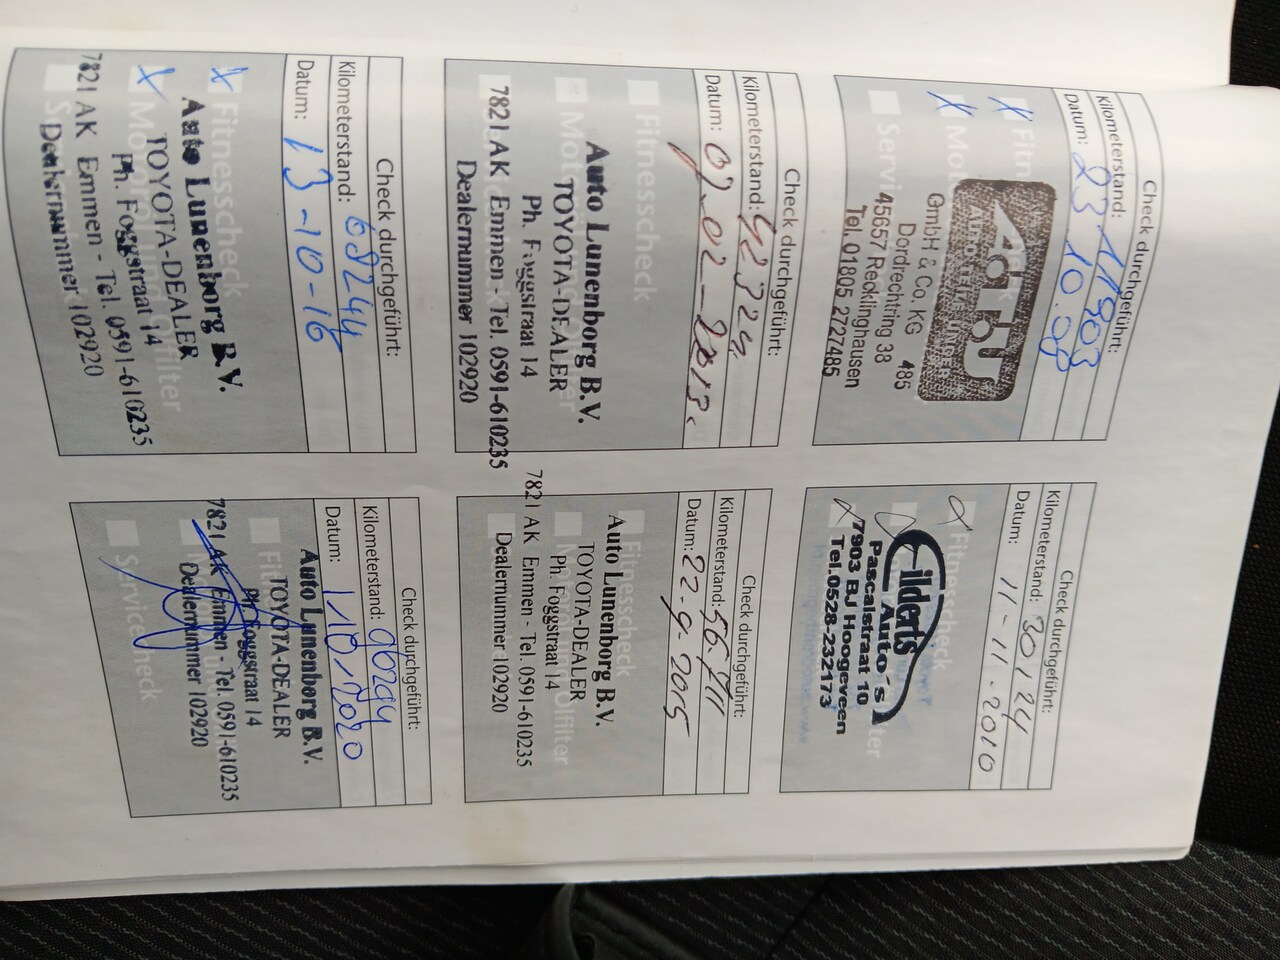 Check durchgeführt:
Kilometerstand: 11903
Datum: 23 10.08
ATU
GmbH & Co. KG 485
Dordrechtring 38
45657 Recklinghausen
Tel. 01805 2727485
Check durchgeführt:
Kilometerstand: 30124
Datum: 11-11-2010
Fitnesscheck
Eilderts
Auto's
Pascalstraat 10
7903 BJ Hoogeveen
Tel.0528-232173
Check durchgeführt:
Kilometerstand: 42324
Datum: 07-02-2013.
Fitnesscheck
Auto Lunenborg B.V.
TOYOTA-DEALER
Ph. Foggstraat 14
7821 AK Emmen - Tel. 0591-610235
Dealernummer 102920
Check durchgeführt:
Kilometerstand:
Datum: 22-9-2015
Fitnesscheck
Auto Lunenborg B.V.
TOYOTA-DEALER
Ph. Foggstraat 14
7821 AK Emmen - Tel. 0591-610235
Dealernummer 102920
Check durchgeführt:
Kilometerstand: 68244
Datum: 13-10-16
Fitnesscheck
Auto Lunenborg B.V.
TOYOTA-DEALER
Ph. Foggstraat 14
7821 AK Emmen - Tel. 0591-610235
Dealernummer 102920
Check durchgeführt:
Kilometerstand:
Datum: 1/10/2020
Auto Lunenborg B.V.
TOYOTA-DEALER
Ph. Foggstraat 14
7821 AK Emmen - Tel. 0591-610235
Dealernummer 102920
Servicecheck